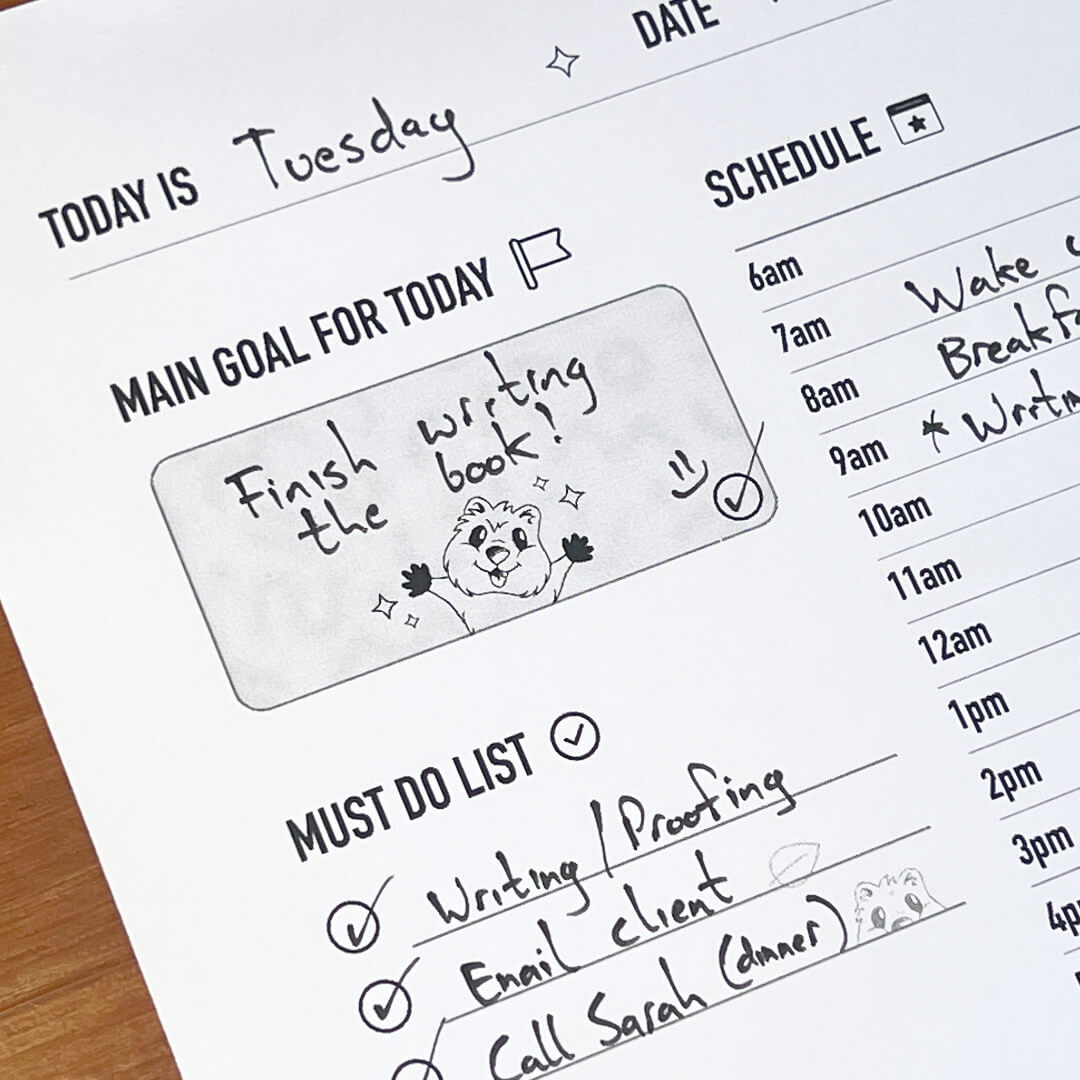 DATE
TODAY IS Tuesday
MAIN GOAL FOR TODAY
Finish writing
the book!
MUST DO LIST
Writing / Proofing
Email client
Call Sarah (dinner)
SCHEDULE
6am
7am Wake
8am
9am
10am
11am
12am
1pm
2pm
3pm